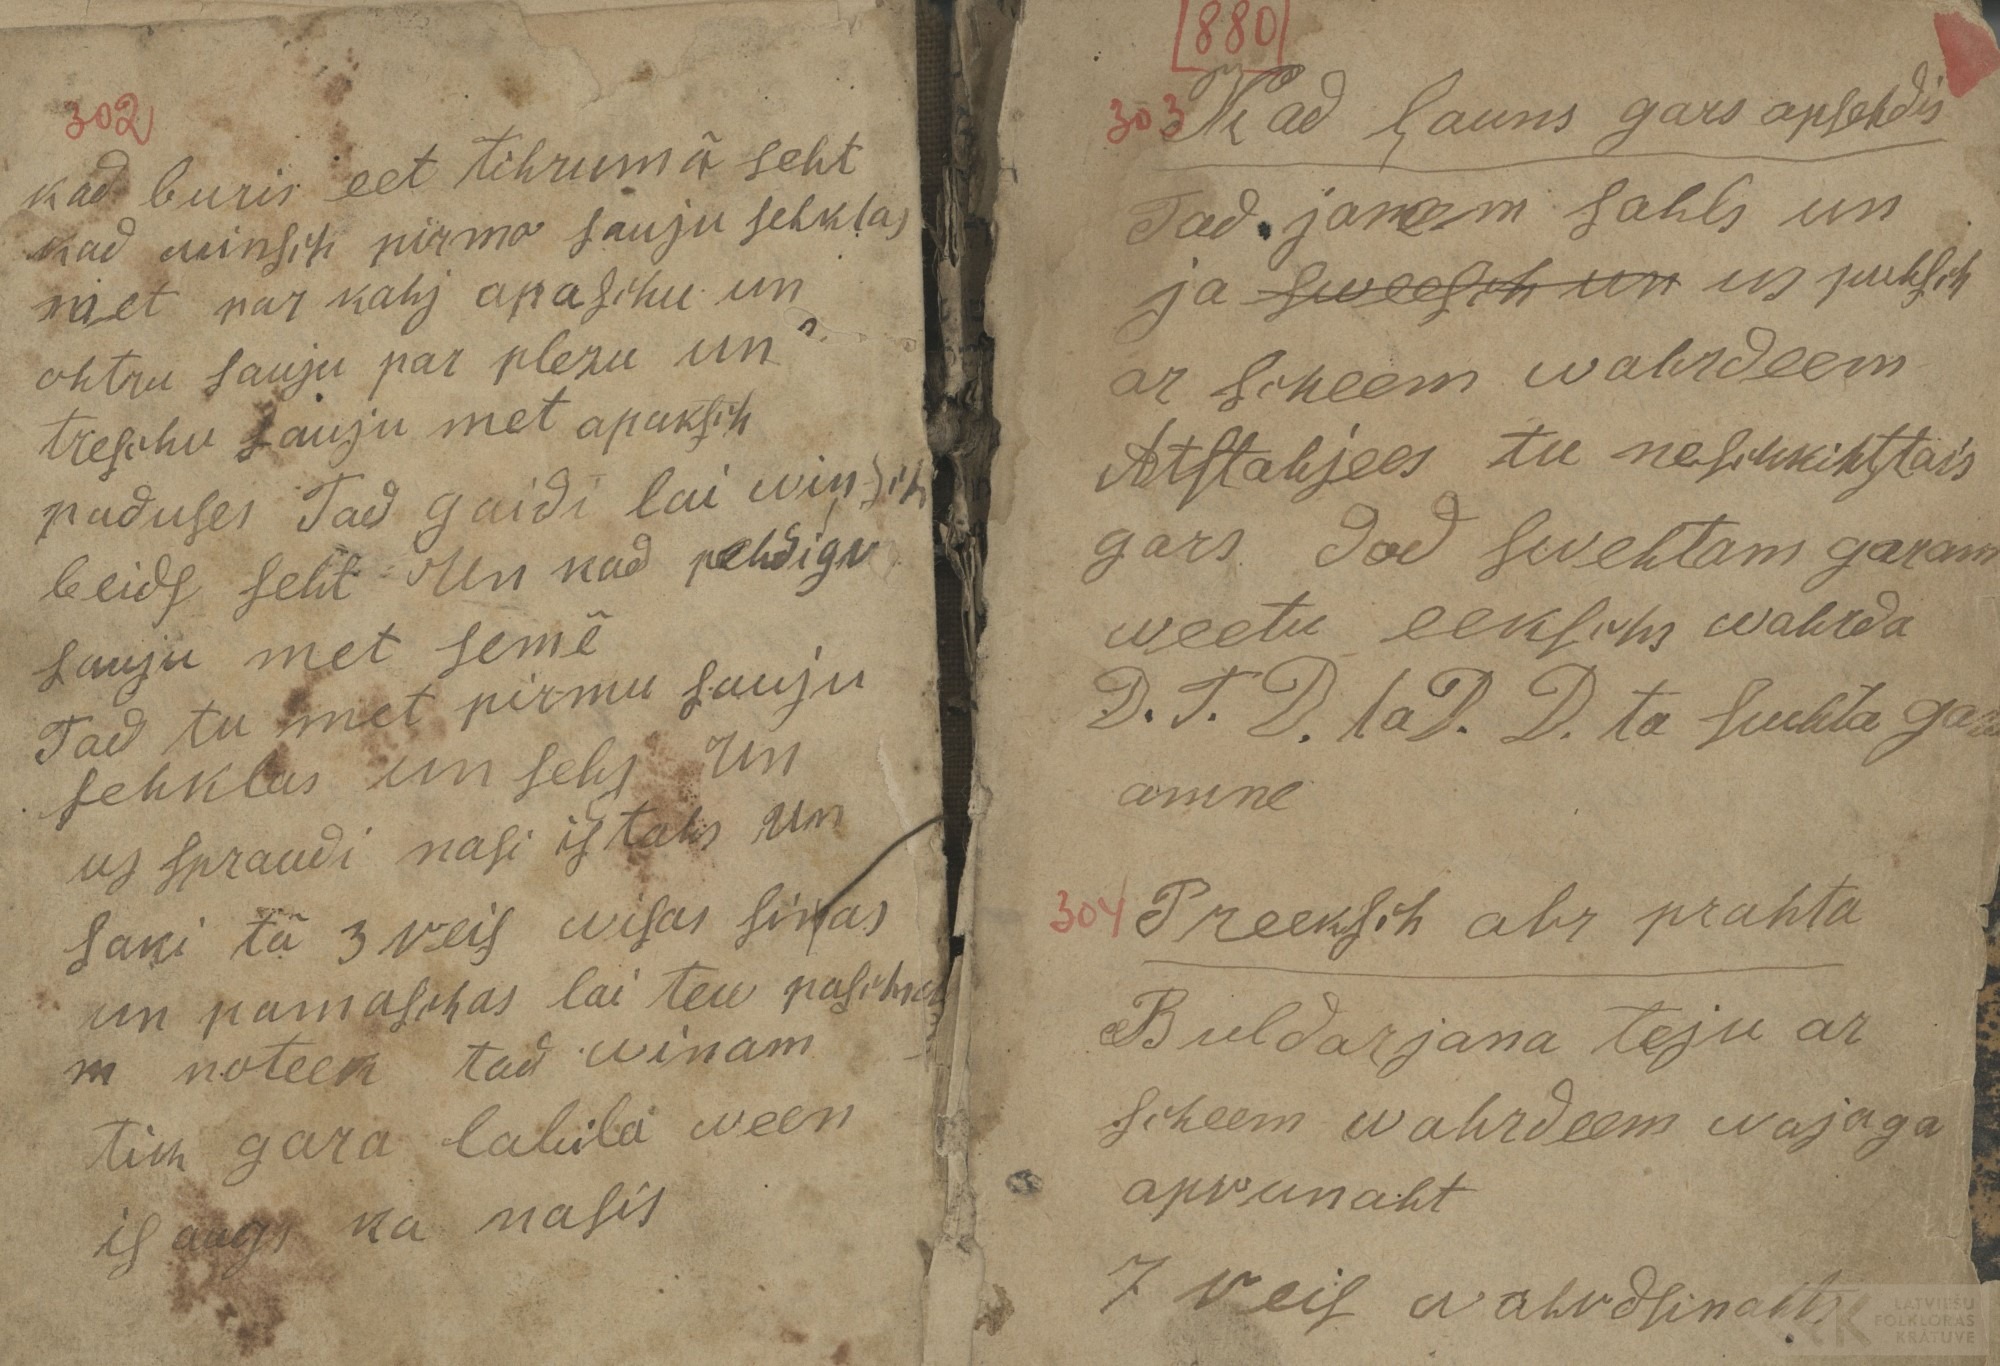 302
kad buris eet tihrumâ seht
kad winsch pirmo sauju sehklas
met par kahj apaschu un
ohtru sauju par plezu un
treschu sauju met apaksch
paduses Tad gaidi lai winsch
beids seht Un kad pehdigo
sauju met semê
Tad tu met pirmu sauju
sehklas un sehj Un
us spraudi nasi is tahs Un
saki tâ 3 reis wisas sinas
un pamaschas lai tew
noteek tad winam
tik gara ween
is augs ka nasis
[880]
303 Kad launs gars apsehdis
Tad janem sahls un
ja sweesch un us puhsch
ar scheem wahrdeem
Atstahjees tu neschkihstais
gars dod swehtam garam
weetu eekschs wahrda
D. T. D. ta D. D. ta swehta
amne
304 Preeksch ahr prahta
Buldarjana teju ar
scheem wahrdeem wajaga
aprunaht
7 reis
LATVIEŠU
FOLKLORAS
KRĀTUVE